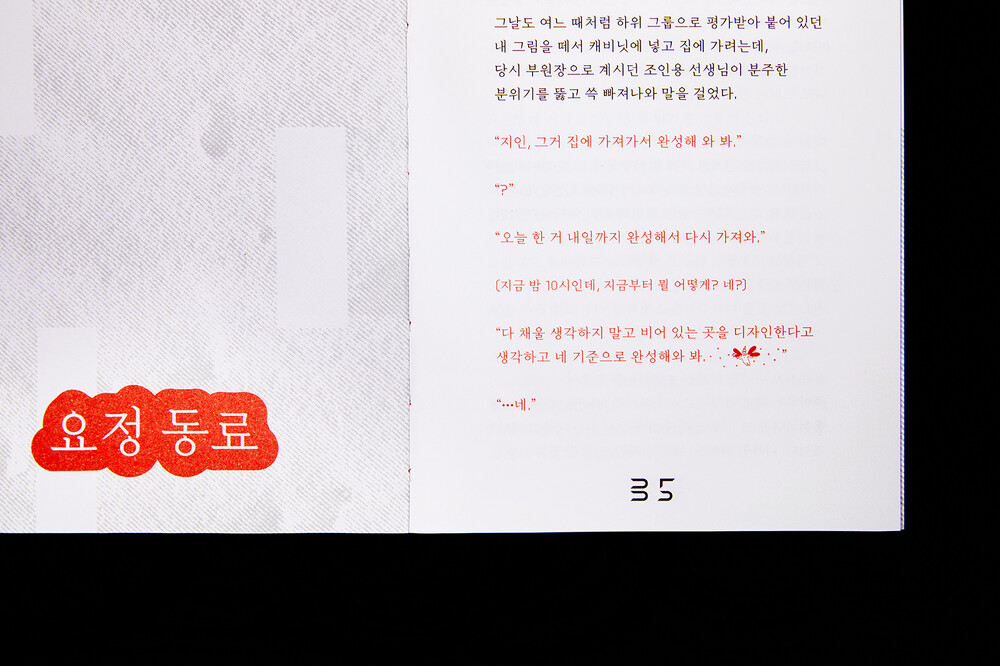 요정 동료
그날도 여느 때처럼 하위 그룹으로 평가받아 붙어 있던
내 그림을 떼서 캐비닛에 넣고 집에 가려는데,
당시 부원장으로 계시던 조인용 선생님이 분주한
분위기를 뚫고 쓱 빠져나와 말을 걸었다.
“지인, 그거 집에 가져가서 완성해 와 봐.”
“?”
“오늘 한 거 내일까지 완성해서 다시 가져와.”
(지금 밤 10시인데, 지금부터 뭘 어떻게? 네?)
“다 채울 생각하지 말고 비어 있는 곳을 디자인한다고
생각하고 네 기준으로 완성해와 봐.”
“…네.”
35